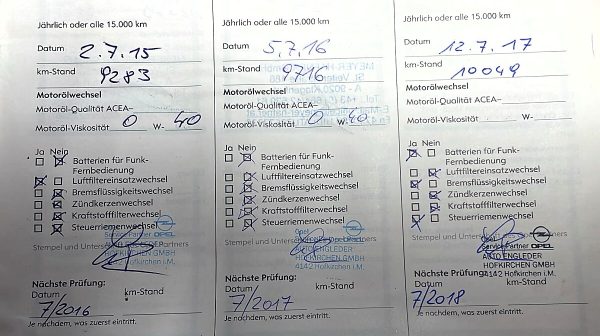 Jährlich oder alle 15.000 km
Datum 2.7.15
km-Stand 9283
Motorölwechsel
Motoröl-Qualität ACEA–
Motoröl-Viskosität 0 W- 40
Ja Nein
Batterien für Funk-
Fernbedienung
Luftfiltereinsatzwechsel
Bremsflüssigkeitswechsel
Zündkerzenwechsel
Kraftstofffilterwechsel
Steuerriemenwechsel
Stempel und Unterschrift des Opel Service Partners
OPEL
HOFKIRCHEN GMBH
4142 Hofkirchen i.M.
Nächste Prüfung:
Datum km-Stand
7/2016
Je nachdem, was zuerst eintritt.
Jährlich oder alle 15.000 km
Datum 5.7.16
km-Stand 9716
Motorölwechsel
Motoröl-Qualität ACEA–
Motoröl-Viskosität 0 W- 40
Ja Nein
Batterien für Funk-
Fernbedienung
Luftfiltereinsatzwechsel
Bremsflüssigkeitswechsel
Zündkerzenwechsel
Kraftstofffilterwechsel
Steuerriemenwechsel
Opel
OPEL
AUTO ENGLEDER
HOFKIRCHEN GMBH
4142 Hofkirchen i.M.
Nächste Prüfung:
Datum km-Stand
7/2017
Je nachdem, was zuerst eintritt.
Jährlich oder alle 15.000 km
Datum 12.7.17
km-Stand 10049
Motorölwechsel
Motoröl-Qualität ACEA–
Motoröl-Viskosität W-
Ja Nein
Batterien für Funk-
Fernbedienung
Luftfiltereinsatzwechsel
Bremsflüssigkeitswechsel
Zündkerzenwechsel
Kraftstofffilterwechsel
Steuerriemenwechsel
Opel
Service Partner OPEL
AUTO ENGLEDER
HOFKIRCHEN GMBH
4142 Hofkirchen i.M.
Nächste Prüfung:
Datum km-Stand
7/2018
Je nachdem, was zuerst eintritt.